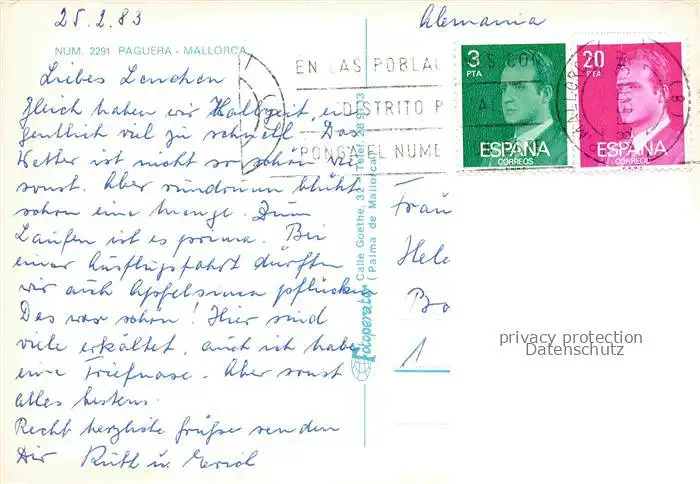 25.2.83
Alemania
NUM. 2291 PAGUERA - MALLORCA
Liebes Lenchen
Gleich haben wir Halbzeit, ei
gentlich viel zu schnell. Das
Wetter ist nicht so schön wie
sonst. Aber rundrum blüht
schon eine Menge. Zum
Laufen ist es prima. Bei
einer Ausflugsfahrt durften
wir auch Apfelsinen pflücken
Das war schön! Hier sind
viele erkältet, auch ich habe
eine Triefnase. Aber sonst
alles bestens.
Recht herzliche Grüße senden
Dir Ruth u.
Fotoperator Calle Goethe, 32 - Telef. 28 91 13
(Palma de Mallorca)
EN LAS POBLAC S CON
DISTRITO P
PONGA EL NUME
MALLORC
3
PTA
ESPAÑA
CORREOS
20
PTA
ESPAÑA
CORREOS
Frau
Hele
Bo
1
privacy protection
Datenschutz